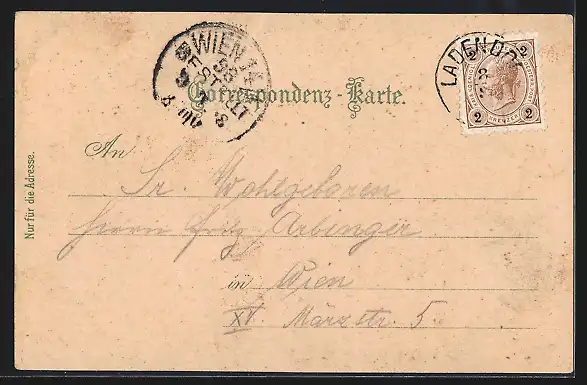 WIEN
BESTELLT
LADENDORF
2 2
KREUZER
2 2
Correspondenz-Karte.
An
Sr. Wohlgeboren
Herrn Fritz Arbinger
in Wien
XV. Märzstr. 5.
Nur für die Adresse.